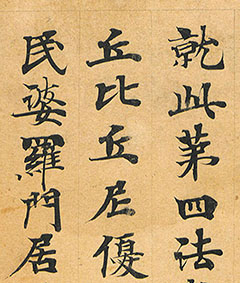 就此第四法
丘比丘尼優
民婆羅門居